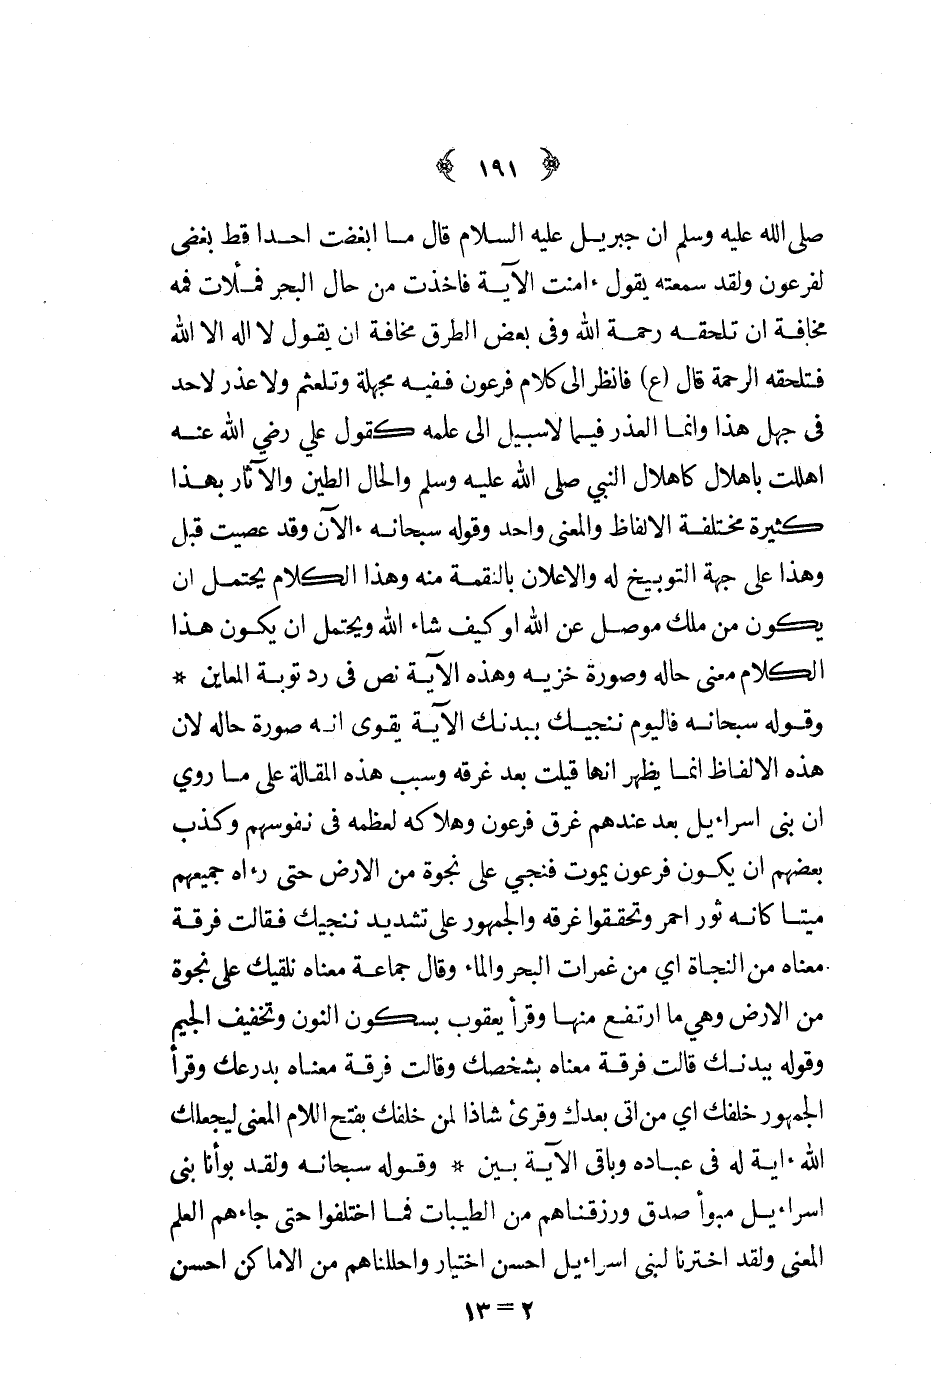 ﴿ ١٩١ ﴾
صلى الله عليه وسلم ان جبريل عليه السلام قال ما ابغضت احدا قط بغضى
لفرعون ولقد سمعته يقول ءامنت الآية فاخذت من حال البحر فملأت فمه
مخافة ان تلحقه رحمة الله وفى بعض الطرق مخافة ان يقول لا اله الا الله
فتلحقه الرحمة قال (ع) فانظر الى كلام فرعون ففيه مجهلة وتلعثم ولا عذر لاحد
فى جهل هذا وانما العذر فيما لاسبيل الى علمه كقول علي رضي الله عنه
اهللت باهلال كاهلال النبي صلى الله عليه وسلم والحال الطين والآثار بهذا
كثيرة مختلفة الالفاظ والمعنى واحد وقوله سبحانه ءالآن وقد عصيت قبل
وهذا على جهة التوبيخ له والاعلان بالنقمة منه وهذا الكلام يحتمل ان
يكون من ملك موصل عن الله او كيف شاء الله ويحتمل ان يكون هذا
الكلام معنى حاله وصورة خزيه وهذه الآية نص فى رد توبة المعاين *
وقوله سبحانه فاليوم ننجيك ببدنك الآية يقوى انه صورة حاله لان
هذه الالفاظ انما يظهر انها قيلت بعد غرقه وسبب هذه المقالة على ما روي
ان بنى اسراءيل بعد عندهم غرق فرعون وهلاكه لعظمه فى نفوسهم وكذب
بعضهم ان يكون فرعون يموت فنجي على نجوة من الارض حتى رءاه جميعهم
ميتا كانه ثور احمر وتحققوا غرقه والجمهور على تشديد ننجيك فقالت فرقة
معناه من النجاة اي من غمرات البحر والماء وقال جماعة معناه نلقيك على نجوة
من الارض وهي ما ارتفع منها وقرأ يعقوب بسكون النون وتخفيف الجيم
وقوله ببدنك قالت فرقة معناه بشخصك وقالت فرقة معناه بدرعك وقرأ
الجمهور خلفك اي من اتى بعدك وقرئ شاذا لمن خلفك بفتح اللام المعنى ليجعلك
الله ءاية له فى عباده وباقى الآية بين * وقوله سبحانه ولقد بوأنا بنى
اسراءيل مبوأ صدق ورزقناهم من الطيبات فما اختلفوا حتى جاءهم العلم
المعنى ولقد اخترنا لبنى اسراءيل احسن اختيار واحللناهم من الاماكن احسن
٢ = ١٣